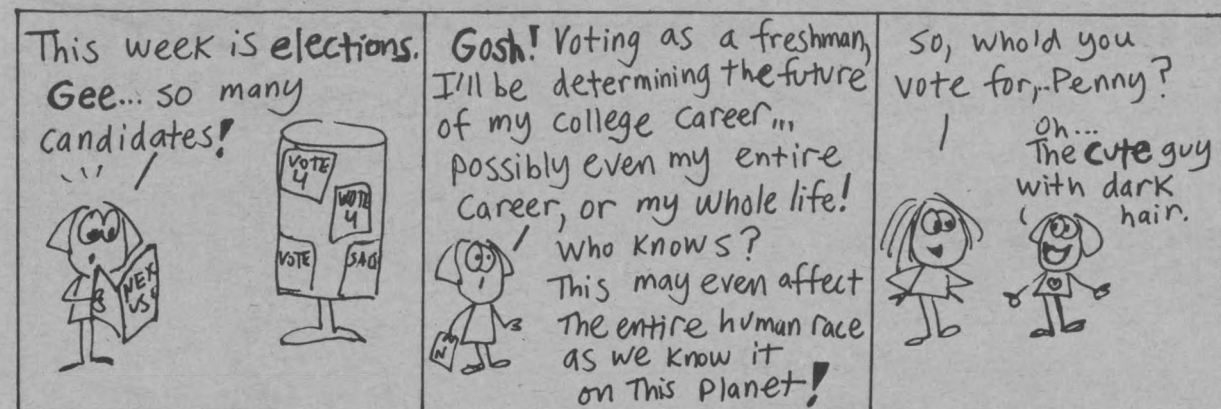 This week is elections.
Gee... so many
candidates!
VOTE
4
VOTE
4
VOTE
NEX
US
Gosh! Voting as a freshman,
I'll be determining the future
of my college career...
possibly even my entire
career, or my whole life!
Who knows?
This may even affect
The entire human race
as we know it
on This Planet!
N
So, who'd you
vote for,..Penny?
Oh...
The cute guy
with dark
hair.